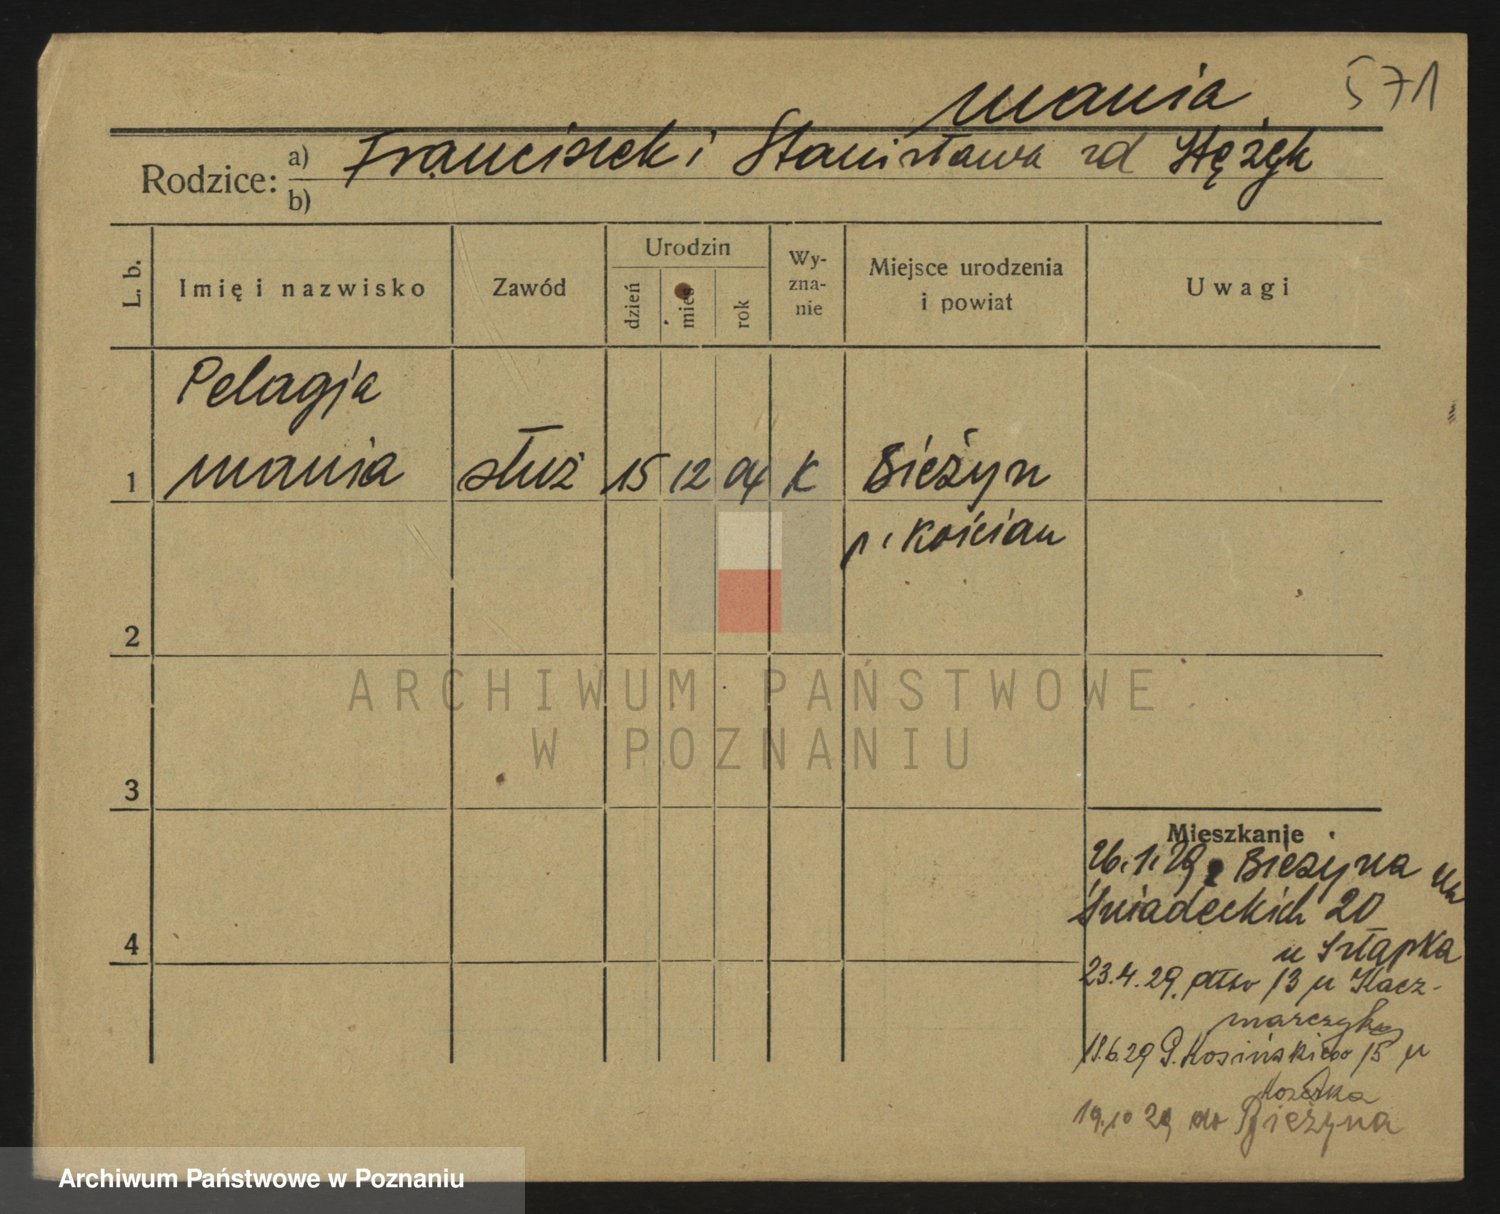 mania
571
Rodzice: a) Franciszek i Stanisława zd Stężyk
b)
L. b.
Imię i nazwisko
Zawód
Urodzin
dzień
mies
rok
Wy-
zna-
nie
Miejsce urodzenia
i powiat
Uwagi
Pelagja
1 mania służ 15 12 04 K Bieżyn
p. Kościan
2
3
4
Mieszkanie
26.1.29 z Bieżyna na
Śniadeckich 20
u Szłapka
23.4.29 13 u Kacz-
marczyka
11.6.29 P. Kosińskiego 15 u
19.10 29 do Bieżyna
ARCHIWUM PAŃSTWOWE
W POZNANIU
Archiwum Państwowe w Poznaniu